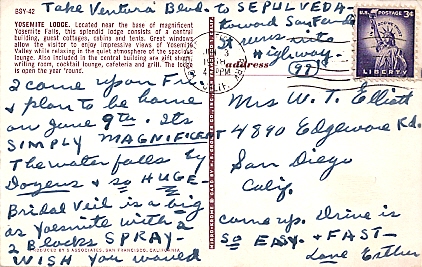 Take Ventura Blvd to SEPULVEDA -
toward San Fernando
it runs into
Highway
(99)
BSY-42
YOSEMITE LODGE. Located near the base of magnificent
Yosemite Falls, this splendid lodge consists of a central
building, guest cottages, cabins and tents. Great windows
allow the visitor to enjoy impressive views of Yosemite
Valley while relaxing in the quiet atmosphere of the spacious
lounge. Also included in the central building are gift shop,
writing room, cocktail lounge, cafeteria and grill. The lodge
is open the year 'round.
I came up on Fri
& plan to be home
on June 9th. Its
SIMPLY MAGNIFICENT
The water falls by
Dozens & so HUGE -
Bridal Veil is a big
as Yosemite with a
2 Blocks SPRAY -
WISH you would
S ASSOCIATES, SAN FRANCISCO, CALIFORNIA
address
U.S. POSTAGE 3¢
LIBERTY
PM
CALIF.
Mrs W. T. Elliott
4890 Edgeware Rd.
San Diego
Calif.
come up. Drive is
so EASY & FAST -
Love Esther